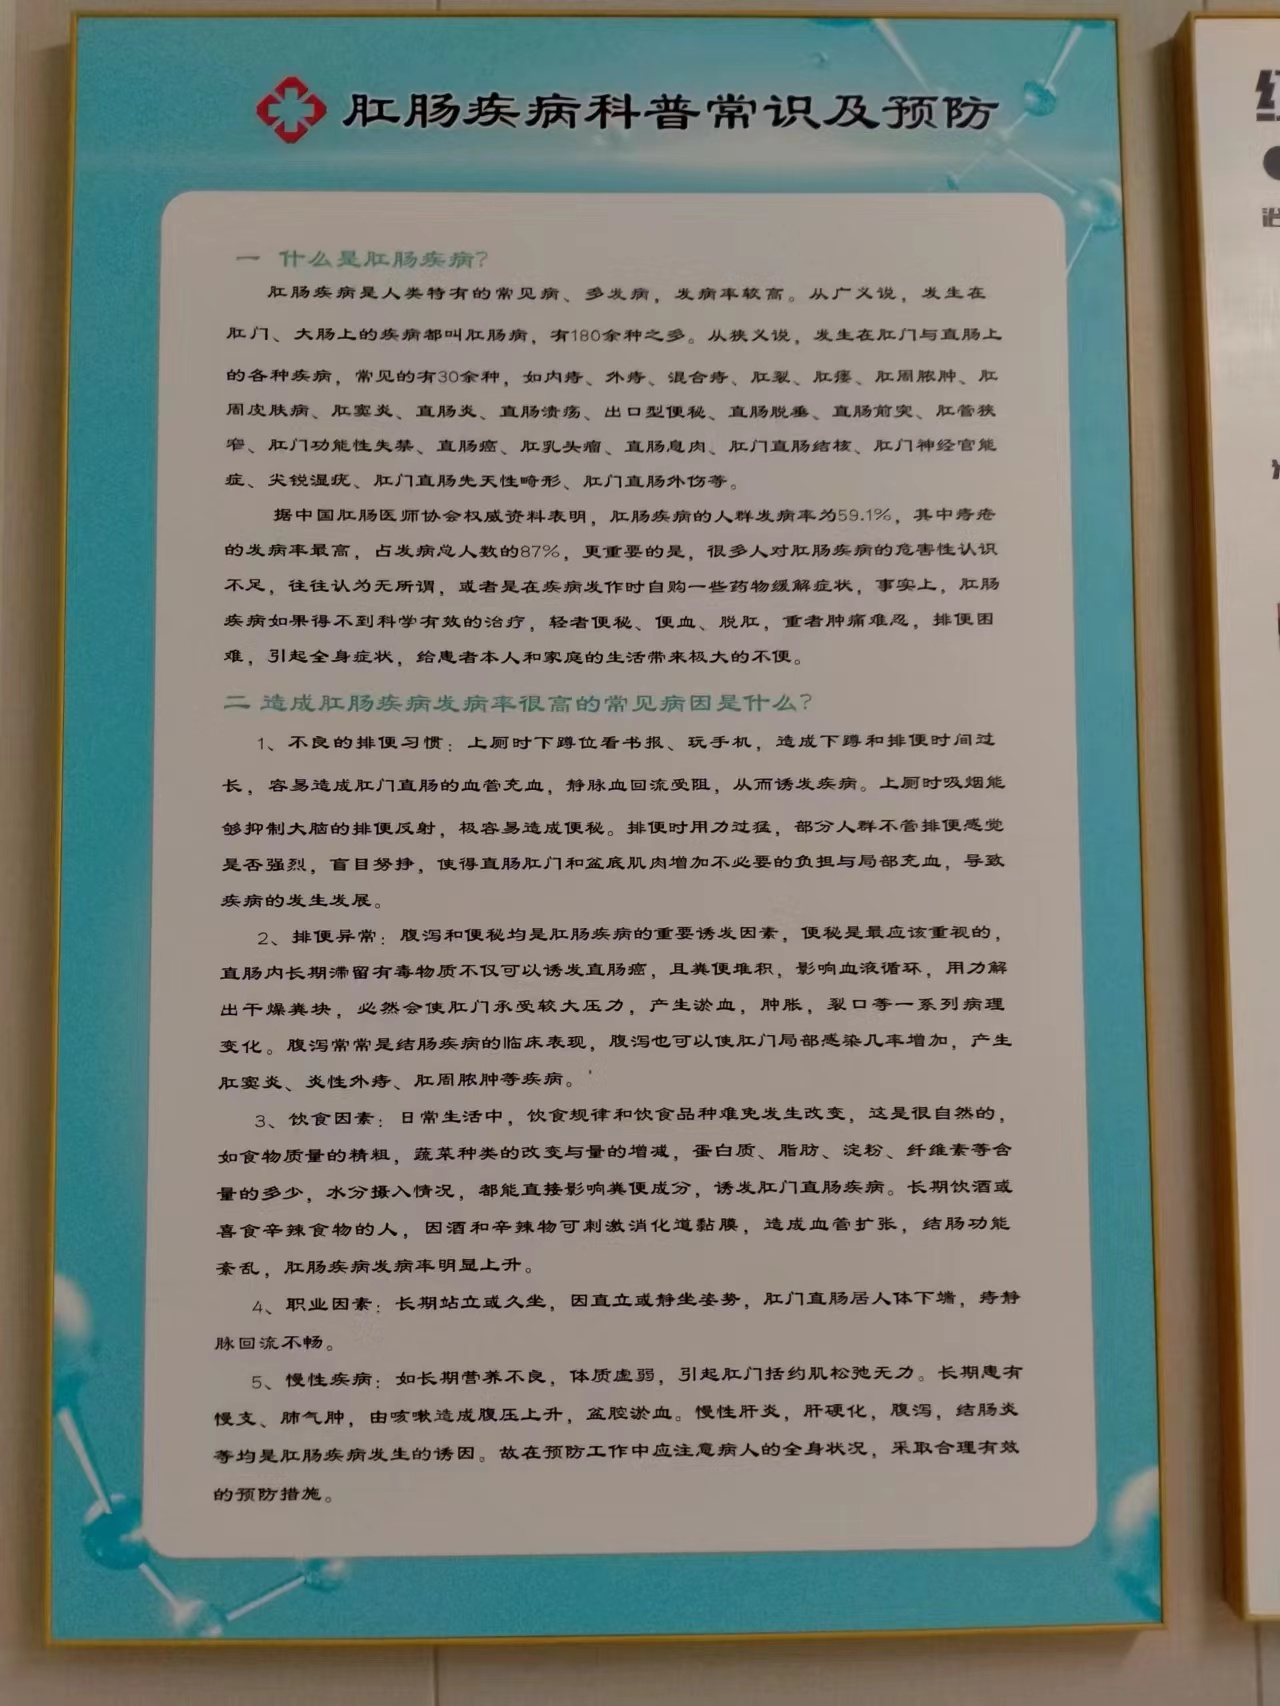 肛肠疾病科普常识及预防
一 什么是肛肠疾病?
肛肠疾病是人类特有的常见病、多发病，发病率较高。从广义说，发生在
肛门、大肠上的疾病都叫肛肠病，有180余种之多。从狭义说，发生在肛门与直肠上
的各种疾病，常见的有30余种，如内痔、外痔、混合痔、肛裂、肛瘘、肛周脓肿、肛
周皮肤病、肛窦炎、直肠炎、直肠溃疡、出口型便秘、直肠脱垂、直肠前突、肛管狭
窄、肛门功能性失禁、直肠癌、肛乳头瘤、直肠息肉、肛门直肠结核、肛门神经官能
症、尖锐湿疣、肛门直肠先天性畸形、肛门直肠外伤等。
据中国肛肠医师协会权威资料表明，肛肠疾病的人群发病率为59.1%，其中痔疮
的发病率最高，占发病总人数的87%，更重要的是，很多人对肛肠疾病的危害性认识
不足，往往认为无所谓，或者是在疾病发作时自购一些药物缓解症状，事实上，肛肠
疾病如果得不到科学有效的治疗，轻者便秘、便血、脱肛，重者肿痛难忍，排便困
难，引起全身症状，给患者本人和家庭的生活带来极大的不便。
二 造成肛肠疾病发病率很高的常见病因是什么?
1、不良的排便习惯：上厕时下蹲位看书报、玩手机，造成下蹲和排便时间过
长，容易造成肛门直肠的血管充血，静脉血回流受阻，从而诱发疾病。上厕时吸烟能
够抑制大脑的排便反射，极容易造成便秘。排便时用力过猛，部分人群不管排便感觉
是否强烈，盲目努挣，使得直肠肛门和盆底肌肉增加不必要的负担与局部充血，导致
疾病的发生发展。
2、排便异常：腹泻和便秘均是肛肠疾病的重要诱发因素，便秘是最应该重视的，
直肠内长期滞留有毒物质不仅可以诱发直肠癌，且粪便堆积，影响血液循环，用力解
出干燥粪块，必然会使肛门承受较大压力，产生淤血，肿胀，裂口等一系列病理
变化。腹泻常常是结肠疾病的临床表现，腹泻也可以使肛门局部感染几率增加，产生
肛窦炎、炎性外痔、肛周脓肿等疾病。
3、饮食因素：日常生活中，饮食规律和饮食品种难免发生改变，这是很自然的，
如食物质量的精粗，蔬菜种类的改变与量的增减，蛋白质、脂肪、淀粉、纤维素等含
量的多少，水分摄入情况，都能直接影响粪便成分，诱发肛门直肠疾病。长期饮酒或
喜食辛辣食物的人，因酒和辛辣物可刺激消化道黏膜，造成血管扩张，结肠功能
紊乱，肛肠疾病发病率明显上升。
4、职业因素：长期站立或久坐，因直立或静坐姿势，肛门直肠居人体下端，痔静
脉回流不畅。
5、慢性疾病：如长期营养不良，体质虚弱，引起肛门括约肌松弛无力。长期患有
慢支、肺气肿，由咳嗽造成腹压上升，盆腔淤血。慢性肝炎，肝硬化，腹泻，结肠炎
等均是肛肠疾病发生的诱因。故在预防工作中应注意病人的全身状况，采取合理有效
的预防措施。